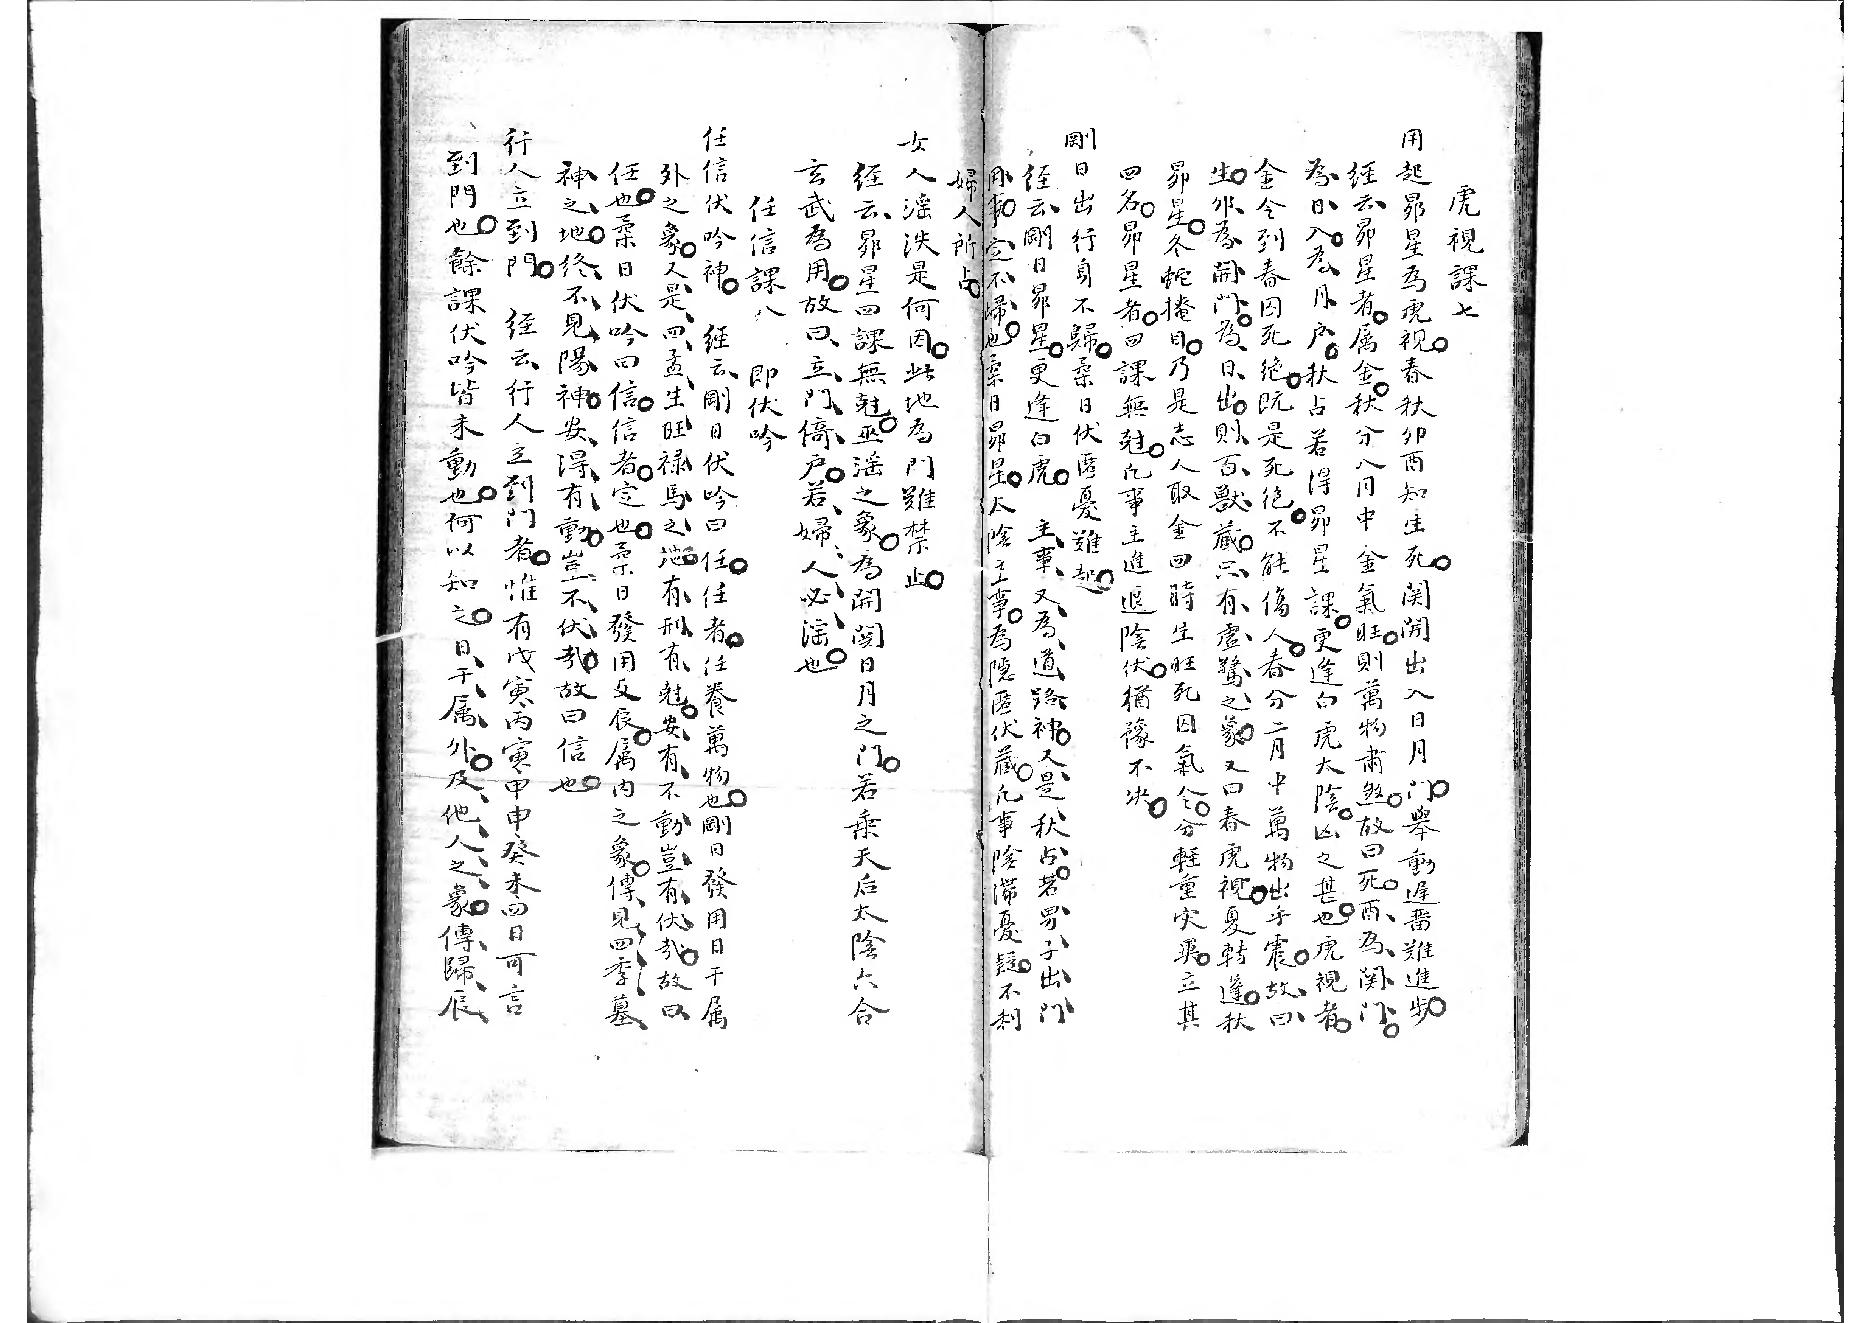 虎視課七
用起昴星為虎視。春秋卯酉知生死。関開出入日月門。舉動遲畱難進步。
經云昴星者。属金。秋分八月中金氣旺。則萬物肅煞。故曰死。酉為関門。
為日入。為月户。秋占若得昴星課。更逢白虎太陰。凶之甚也。虎視者。
金令到春囚死絶。既是死絶。不能傷人。春分二月中萬物出乎震。故曰
生。卯為開門。為日出。則百獸藏。只有虛驚之象。又曰春虎視。夏轉逢。秋
昴星。冬蛇掩目。乃是志人取金四時生旺死囚氣令。分輕重灾英。立其
四名。昴星者。四課無尅。凡事主進退陰伏。猶豫不决。
剛日出行身不歸。柔日伏匿憂難起。
經云剛日昴星。更逢白虎。主事又為道路神。又是秋占。若男子出門
用事。定不歸也。柔日昴星。太陰主事。為隱匿伏藏。凡事陰滞憂疑。不利
婦人所占。
女人滛泆是何因。此地為門難禁止。
經云昴星四課無尅。巫滛之象。為開関日月之門。若乗天后太陰六合
玄武為用。故曰立門倚户。若婦人必滛也。
任信課八 即伏吟
任信伏吟神。 經云剛日伏吟曰任。任者。任養萬物也。剛日發用日干属
外之象。又是四孟生旺禄馬之地。有刑有尅。安有不動。豈有伏哉。故曰
任也。柔日伏吟曰信。信者。定也。柔日發用支辰。属内之象。傳見四季墓
神之地。終不見陽神。安淂有動。豈不伏哉。故曰信也。
行人立到門。 經云行人立到門者。惟有戊寅丙寅甲申癸未四日可言
到門也。餘課伏吟皆未動也。何以知之。日干属外。及他人之象。傳歸辰